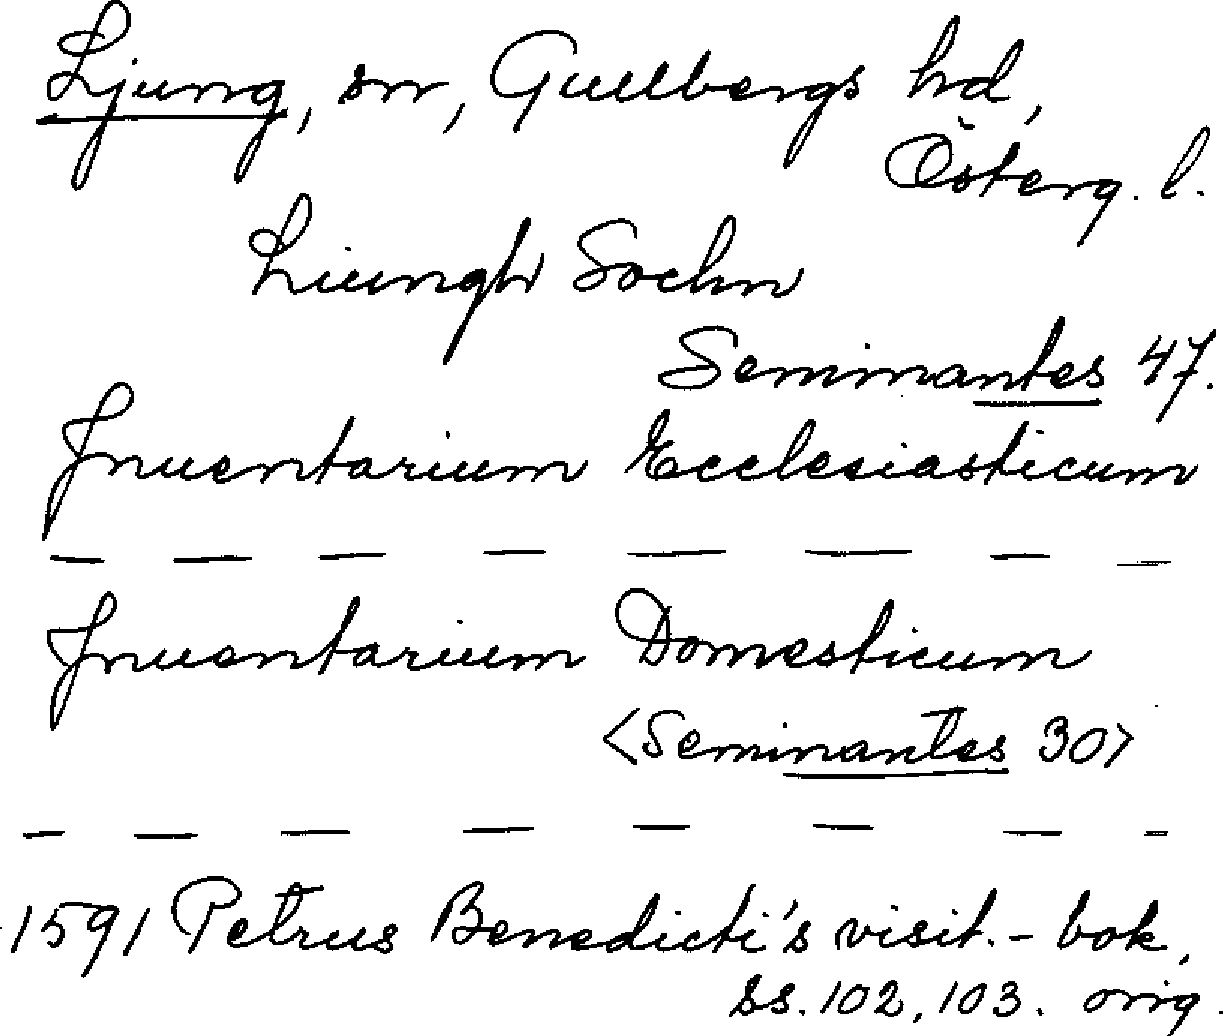 Ljung, sn, Gullbergs hd,
Österg. l.
Liungh Sochn
Seminantes 47.
Inuentarium Ecclesiasticum
— — — — — — — —
Inuentarium Domesticum
<Seminantes 30>
— — — — — — — —
1591 Petrus Benedicti's visit.-bok,
ss. 102, 103. orig.